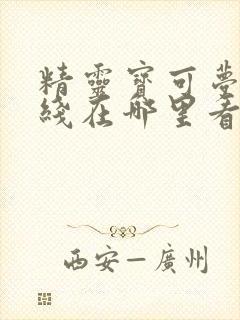 精靈寶可夢
綫在哪里看
西安—廣州